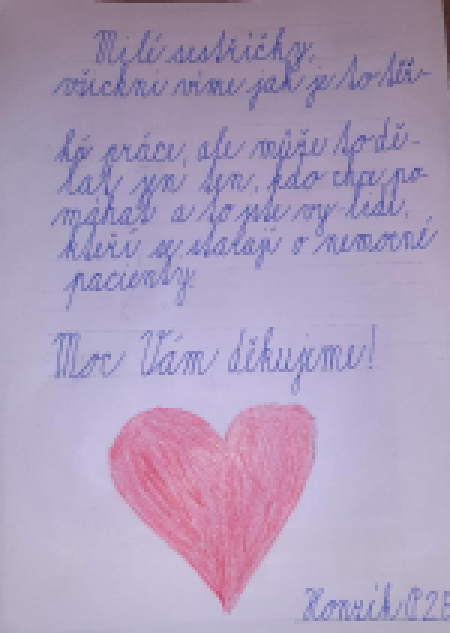 Milé sestřičky,
všichni víme jak je to těž-
ká práce, ale může to dě-
lat jen ten, kdo chce po-
máhat a to jste vy-lidi,
kteří se starají o nemocné
pacienty.
Moc Vám děkujeme!
Honzík